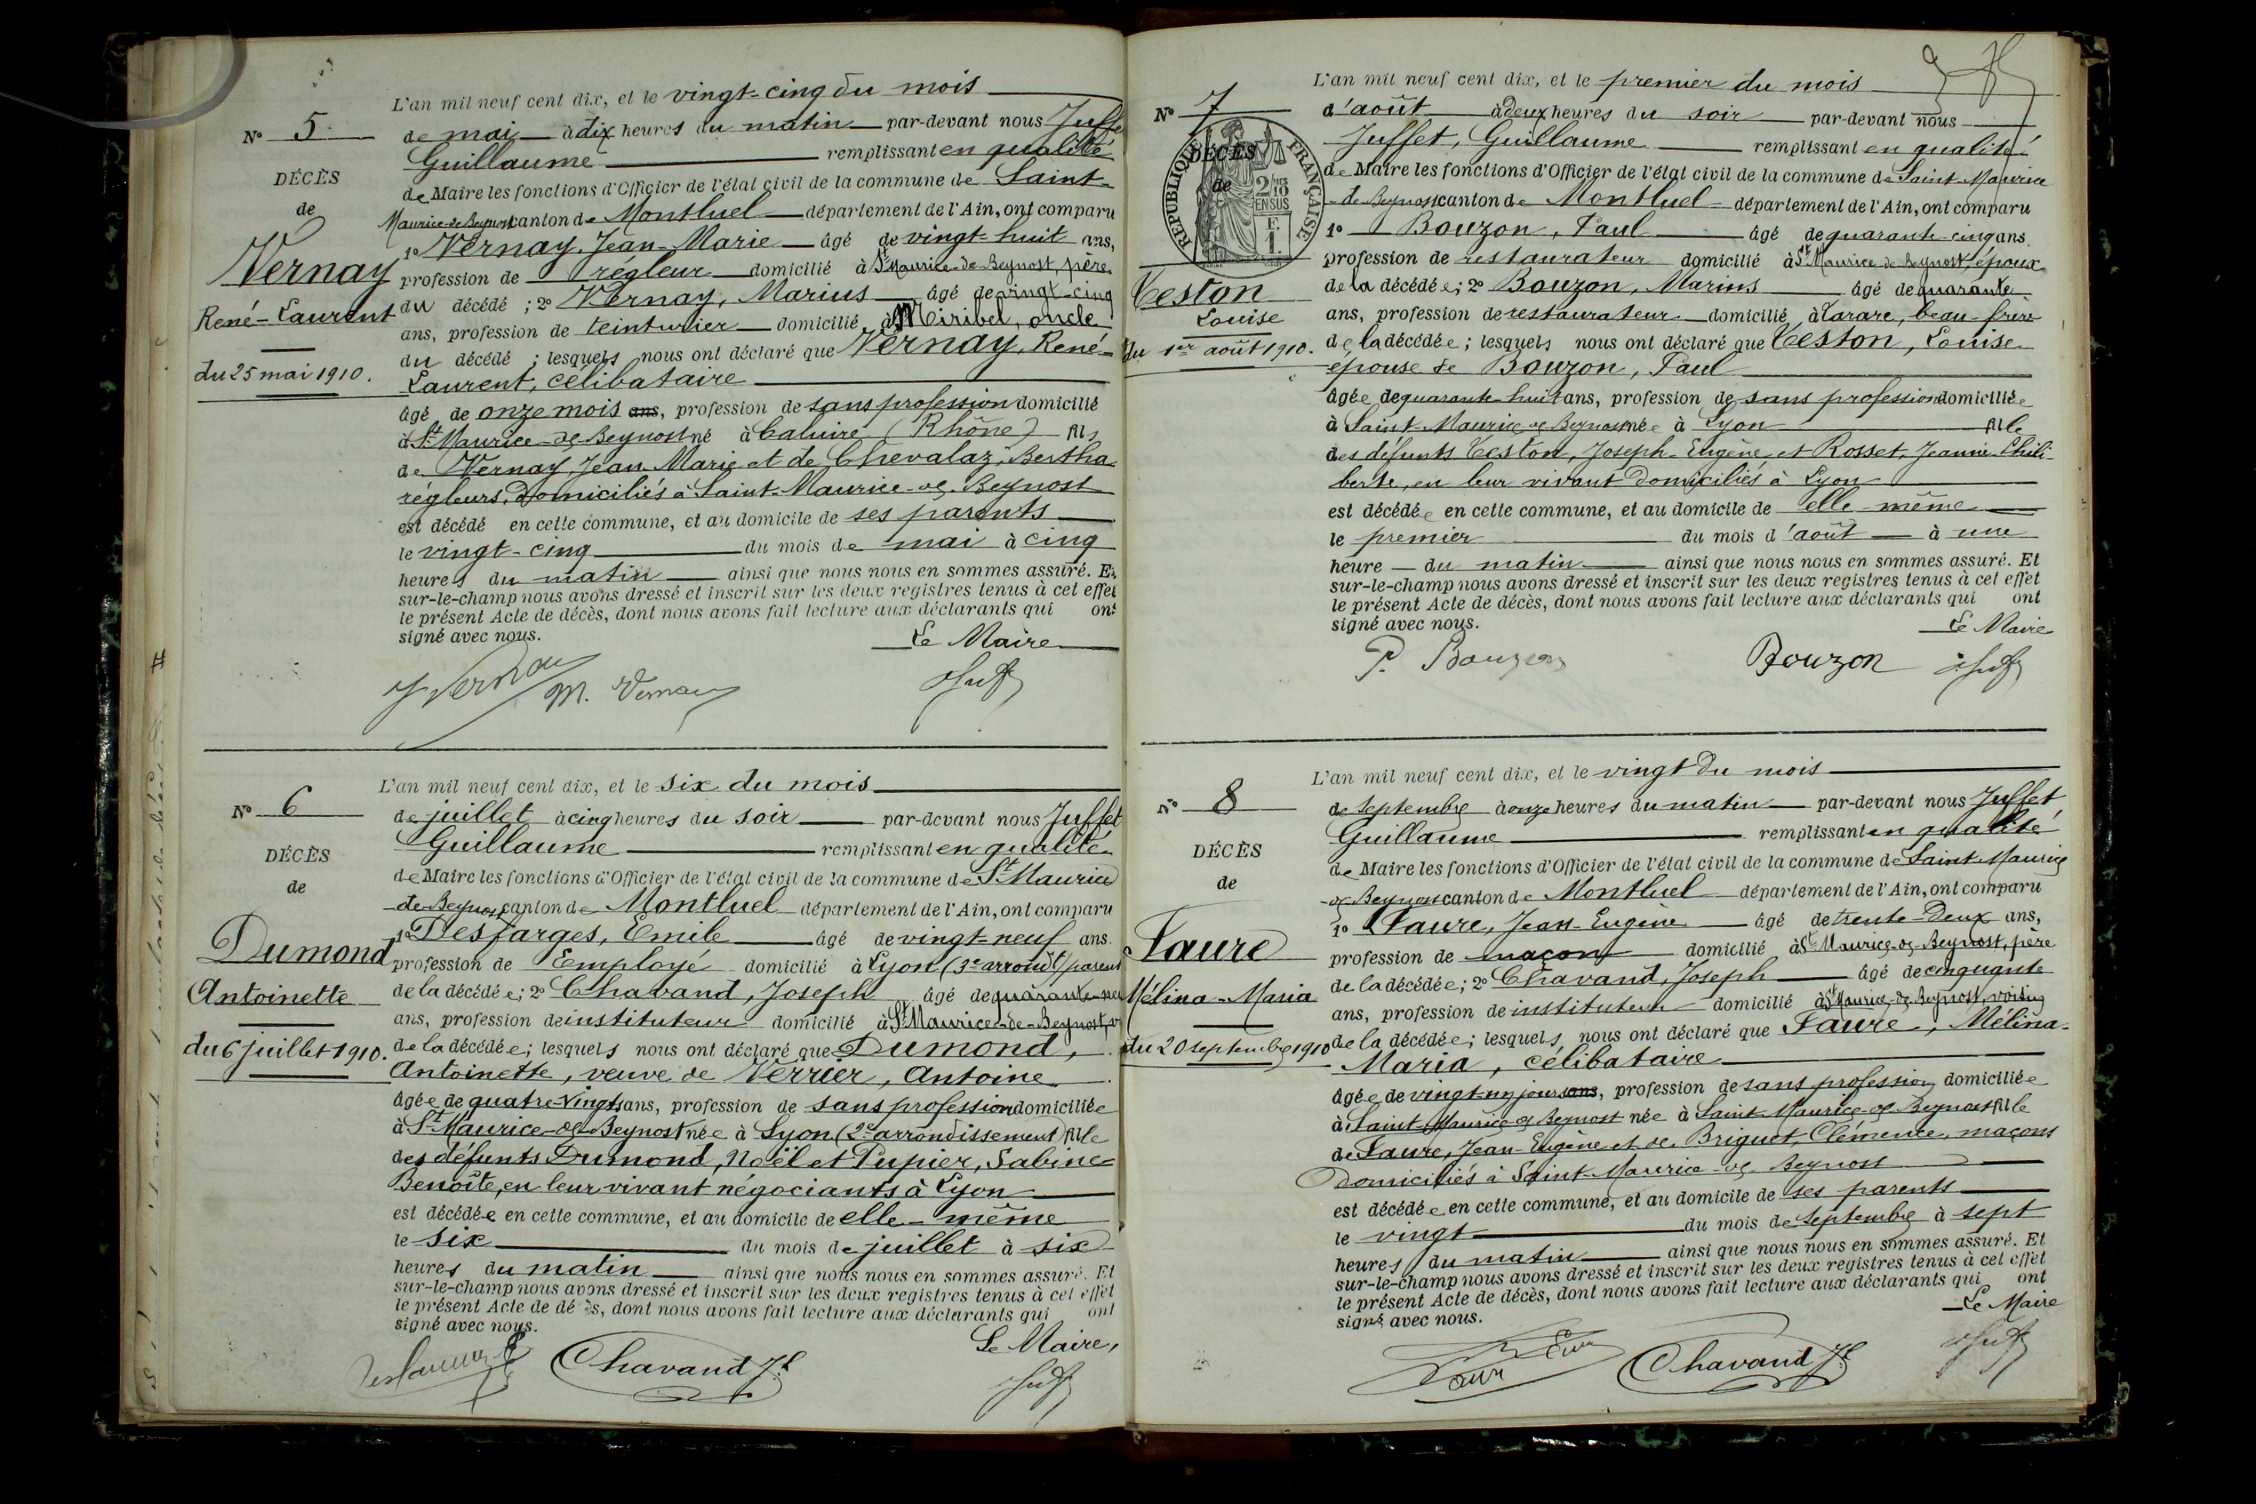 L'an mil neuf cent dix, et le vingt-cinq du mois
N° 5
de mai à dix heures du matin par-devant nous Juffet
Guillaume remplissant en qualité
DÉCÈS
de Maire les fonctions d'Officier de l'état civil de la commune de Saint-
de
Maurice-de-Beynost canton de Montluel département de l'Ain, ont comparu
1° Vernay, Jean-Marie âgé de vingt-huit ans,
Vernay
profession de régleur domicilié à St Maurice-de-Beynost, père
René-Laurent
du décédé ; 2° Vernay, Marius âgé de vingt-cinq
ans, profession de teinturier domicilié à Miribel, oncle
du décédé ; lesquels nous ont déclaré que Vernay, René-
du 25 mai 1910.
Laurent, célibataire
âgé de onze mois ans, profession de sans profession domicilié
à St Maurice-de-Beynost né à Caluire (Rhône) fils
de Vernay, Jean Marie et de Chevalaz, Bertha
régleurs, domiciliés à Saint-Maurice-de-Beynost
est décédé en cette commune, et au domicile de ses parents
le vingt-cinq du mois de mai à cinq
heures du matin ainsi que nous nous en sommes assuré. Et
sur-le-champ nous avons dressé et inscrit sur les deux registres tenus à cet effet
le présent Acte de décès, dont nous avons fait lecture aux déclarants qui ont
signé avec nous.
Le Maire
J Vernay M. Vernay Juffet
L'an mil neuf cent dix, et le six du mois
N° 6
de juillet à cinq heures du soir par-devant nous Juffet
Guillaume remplissant en qualité
DÉCÈS
de Maire les fonctions d'Officier de l'état civil de la commune de St Maurice
de
de Beynost canton de Montluel département de l'Ain, ont comparu
1° Desfarges, Emile âgé de vingt-neuf ans.
Dumond
profession de Employé domicilié à Lyon (3e arrondt) parent
Antoinette
de la décédée ; 2° Chavand, Joseph âgé de quarante-neuf
ans, profession de instituteur domicilié à St Maurice-de-Beynost,
du 6 juillet 1910.
de la décédée ; lesquels nous ont déclaré que Dumond,
Antoinette, veuve de Verrier, Antoine
âgée de quatre-vingts ans, profession de sans profession domiciliée
à St Maurice-de-Beynost née à Lyon (2e arrondissement) fille
des défunts Dumond, Noël et Pupier, Sabine-
Benoîte, en leur vivant négociants à Lyon
est décédée en cette commune, et au domicile de elle-même
le six du mois de juillet à six
heures du matin ainsi que nous nous en sommes assuré. Et
sur-le-champ nous avons dressé et inscrit sur les deux registres tenus à cet effet
le présent Acte de décès, dont nous avons fait lecture aux déclarants qui ont
signé avec nous.
Le Maire,
Desfarges E Chavand Jh Juffet
L'an mil neuf cent dix, et le premier du mois
N° 7
d'août à deux heures du soir par-devant nous
Juffet, Guillaume remplissant en qualité
DÉCÈS
de
RÉPUBLIQUE FRANÇAISE
2/10 EN SUS
F. 1.
de Maire les fonctions d'Officier de l'état civil de la commune de Saint-Maurice
-de Beynost canton de Montluel département de l'Ain, ont comparu
1° Bouzon, Paul âgé de quarante-cinq ans
profession de restaurateur domicilié à St Maurice de Beynost, époux
Teston
de la décédée ; 2° Bouzon, Marius âgé de quarante
Louise
ans, profession de restaurateur domicilié à Tarare, beau-frère
du 1er août 1910.
de la décédée ; lesquels nous ont déclaré que Teston, Louise
épouse de Bouzon, Paul
âgée de quarante-huit ans, profession de sans profession domiciliée
à Saint-Maurice-de-Beynost née à Lyon fille
des défunts Teston, Joseph-Eugène et Rosset, Jeanne Phili-
berte, en leur vivant domiciliés à Lyon
est décédée en cette commune, et au domicile de elle-même
le premier du mois d'août à une
heure du matin ainsi que nous nous en sommes assuré. Et
sur-le-champ nous avons dressé et inscrit sur les deux registres tenus à cet effet
le présent Acte de décès, dont nous avons fait lecture aux déclarants qui ont
signé avec nous.
Le Maire
P. Bouzon Bouzon Juffet
L'an mil neuf cent dix, et le vingt du mois
N° 8
de septembre à onze heures du matin par-devant nous Juffet
Guillaume remplissant en qualité
DÉCÈS
de Maire les fonctions d'Officier de l'état civil de la commune de Saint Maurice
de
-de Beynost canton de Montluel département de l'Ain, ont comparu
1° Faure, Jean-Eugène âgé de trente-deux ans,
Faure
profession de maçon domicilié à St Maurice-de-Beynost, père
Mélina-Maria
de la décédée ; 2° Chavand, Joseph âgé de cinquante
ans, profession de instituteur domicilié à St Maurice-de-Beynost, voisin
du 20 septembre 1910
de la décédée ; lesquels nous ont déclaré que Faure, Mélina-
Maria, célibataire
âgée de vingt-un jours ans, profession de sans profession domiciliée
à Saint-Maurice de Beynost née à Saint-Maurice-de Beynost fille
de Faure, Jean-Eugène et de Briguet, Clémence, maçons
domiciliés à Saint-Maurice-de-Beynost
est décédée en cette commune, et au domicile de ses parents
le vingt du mois de septembre à sept
heures du matin ainsi que nous nous en sommes assuré. Et
sur-le-champ nous avons dressé et inscrit sur les deux registres tenus à cet effet
le présent Acte de décès, dont nous avons fait lecture aux déclarants qui ont
signé avec nous.
Le Maire
Chavand Jh Juffet